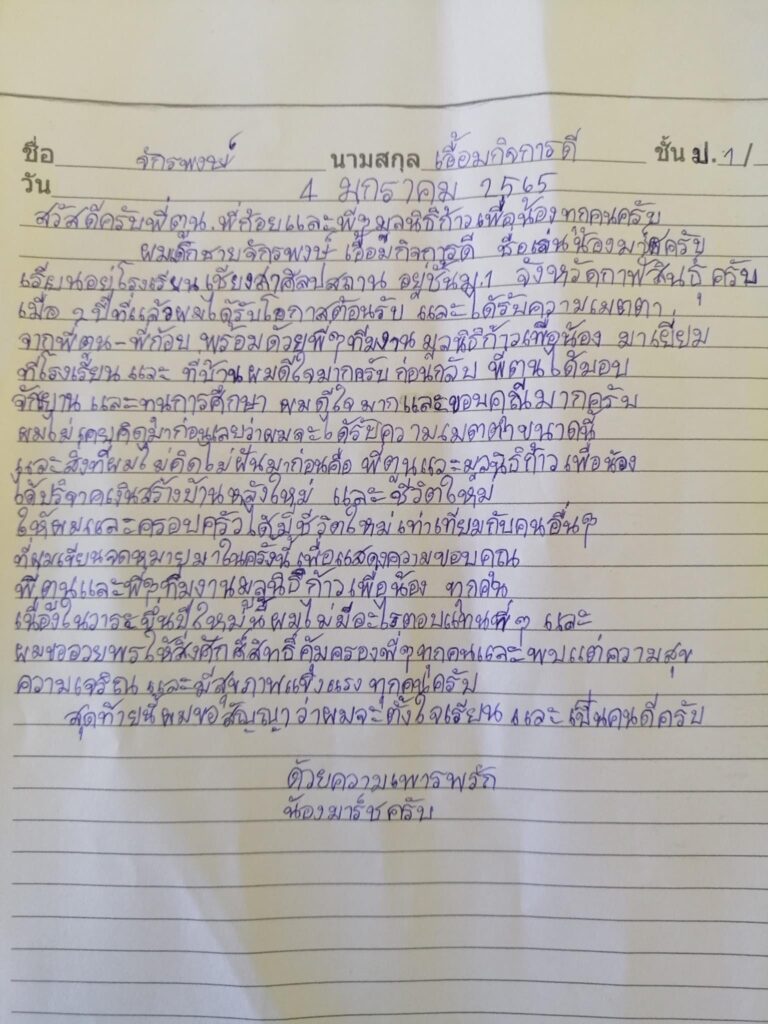 ชื่อ จักรพงษ์ นามสกุล เอื้อมกิจการดี ชั้น ป.1/
วัน 4 มกราคม 2565
สวัสดีครับพี่ตูน.พี่ก้อยและพี่ๆมูลนิธิก้าวเพื่อน้องทุกคนครับ
ผมเด็กชายจักรพงษ์ เอื้อมกิจการดี ชื่อเล่นน้องมาร์ชครับ
เรียนอยู่โรงเรียนเชียงสาศิลปสถาน อยู่ชั้นม.1 จังหวัดกาฬสินธุ์ครับ
เมื่อ 2 ปีที่แล้วผมได้รับโอกาสต้อนรับ และได้รับความเมตตา
จากพี่ตูน-พี่ก้อย พร้อมด้วยพี่ๆทีมงานมูลนิธิก้าวเพื่อน้อง มาเยี่ยม
ที่โรงเรียนและ ที่บ้านผมดีใจมากครับก่อนกลับ พี่ตูนได้มอบ
จักยานและทุนการศึกษา ผมดีใจมากและขอบคุณมากครับ
ผมไม่เคยคิดมาก่อนเลยว่าผมจะได้รับความเมตตาขนาดนี้
และสิ่งที่ผมไม่คิดไม่ฝันมาก่อนคือ พี่ตูนและมูลนิธิก้าวเพื่อน้อง
ได้บริจาคเงินสร้างบ้านหลังใหม่ และชีวิตใหม่
ให้ผมและครอบครัวได้มีชีวิตใหม่เท่าเทียมกับคนอื่นๆ
ที่ผมเขียนจดหมายมาในครั้งนี้ เพื่อแสดงความขอบคุณ
พี่ตูนและพี่ๆทีมงานมูลนิธิก้าวเพื่อน้อง ทุกคน
เนื่องในวาระขึ้นปีใหม่นี้ผมไม่มีอะไรตอบแทนพี่ๆ และ
ผมขออวยพรให้สิ่งศักสิ์สิทธิ์คุ้มครองพี่ๆทุกคนและพบแต่ความสุข
ความเจริญและมีสุขภาพแข็งแรงทุกคนครับ
สุดท้ายนี้ผมขอสัญญาว่าผมจะตั้งใจเรียน และเป็นคนดีครับ
ด้วยความเพารพรัก
น้องมาร์ชครับ